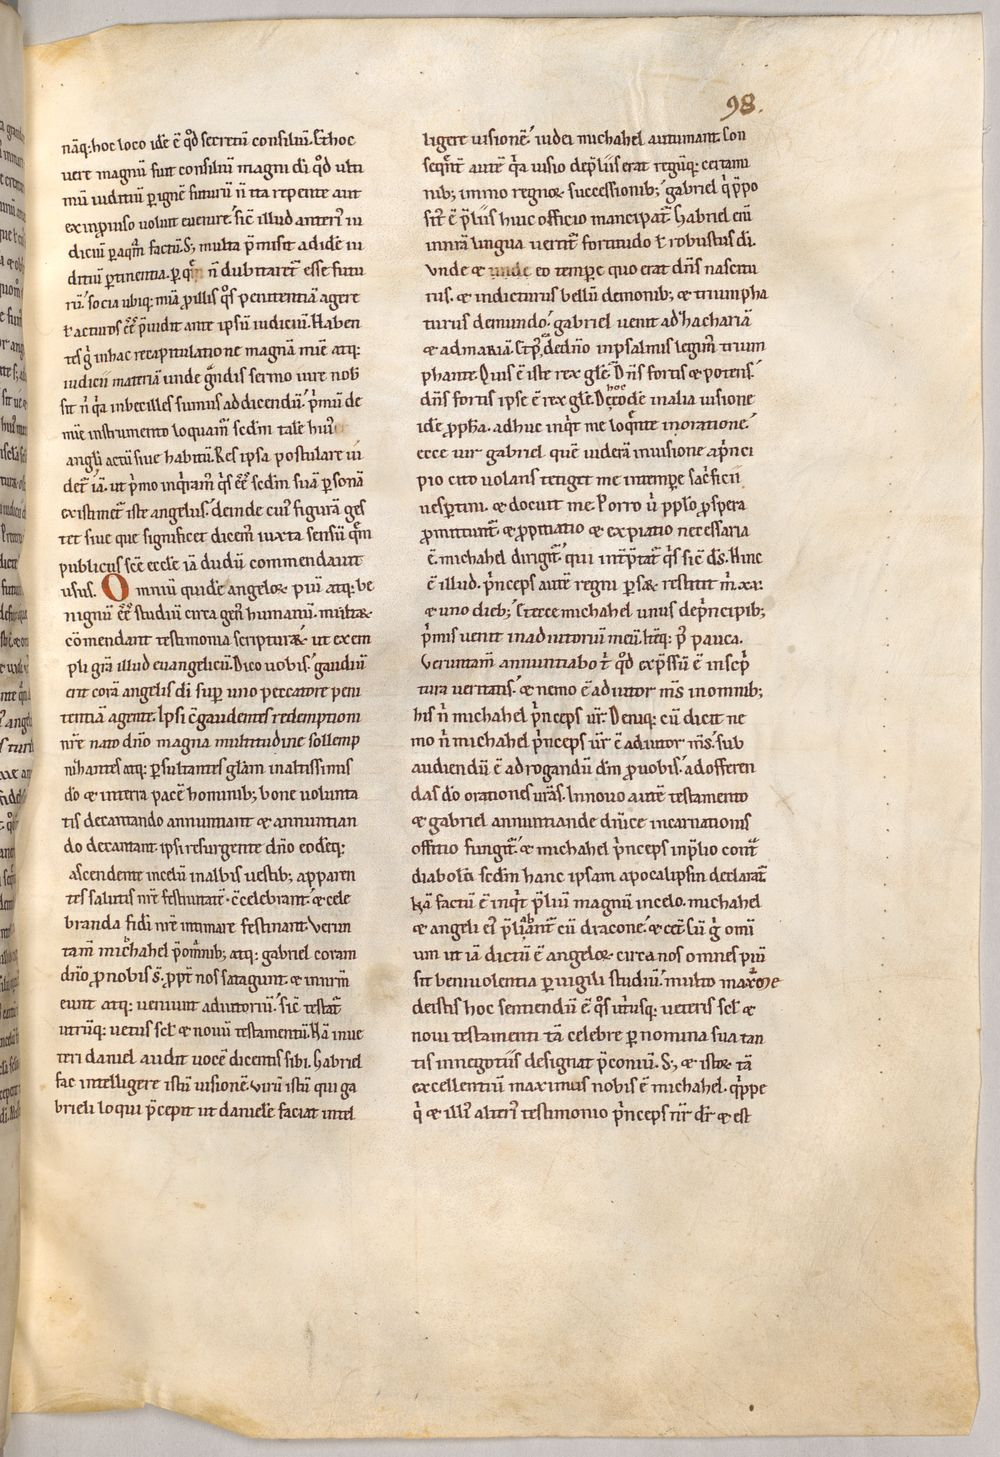 98.
nāq; hoc loco idē ē qd̊ secretū consiliū. Et hoc
uere magnū fuit consiliū magni dī qd̊ ulti
mū iuditiū ꝑ ignē futurū ñ ita repente aut
ex inꝓuiso uoluit euenire. sic̄ illud anteri᷒ iu
diciū ꝑ aquā factū. S; multa p̄misit ad idē iu
ditiū ꝑtinentia. ꝑ ñ dubitaret̄ esse futu
rū. socia ubiq; miā ꝓ illis qͦs penitentiā agere
ł acturos ēē p̄uidit ante ipsū iudiciū. Haben
tes gͥ in hac recapitulatione magnā miē atq;
iudicii materiā unde gͣndis sermo iure nob̄
sit ñ qͥa inbecilles sumus ad dicendū. pͥmū de
miē instrumento loquam̄ scdm̄ talē hui᷒
angli actū siue habitū. Res ipsa postulare ui
det̄ iā. ut pͥmo inqͥram᷒ qͥs ēē scdm̄ suā ꝑsonā
existimet̄ iste angelus. deinde cui᷒ figurā ges
tet siue que significet dicem᷒ iuxta sensū quē
publicus scē ecclē iā dudū commendauit
usus. Omniū quidē angeloꝝ piū atq; be
nignū ēē studiū circa gen᷒ humanū. multa
cōmendant testimonia scripturaꝝ ut exem
pli grā illud euangelicū. Dico uobis. gaudiū
erit corā angelis dī suꝑ uno peccatore peni
tentiā agente. Ipsi c̄gaudentes redemptioni
nr̄e nato dn̄o magna multitudine sollemp
nihantes atq; ꝑsultantes glām in altissimis
dō ⁊ in terra pacē hominib; bone uolunta
tis decantando annuntiant ⁊ annuntian
do decantant. ipsi resurgente dn̄o eodēq;
ascendente in celū in albis uestib; apparen
tes salutis nr̄e festiuitatē c̄celebrant. ⁊ cele
branda fidī nr̄e intimare festinant. Verun
tam̄ michahel p̄ omīnib; atq; gabriel coram
dn̄o ꝓ nobis s̄. ꝓpt̄ nos satagunt ⁊ inuim̄
eunt atq; ueniunt adiutoriū. sic̄ testat̄
utrūq; uetus scł ⁊ nouū testamentū. Nā inue
teri daniel audit uocē dicentis sibi. Gabriel
fac intelligere istū uisionē. Virū istū qui ga
brieli loqui p̄cepit ut danielē faciat intel
ligere uisionē. iudei michahel autumant. Con
seqn̄t autē qͥa uisio de p̄liis erat regūq; certami
nib; immo regnoꝝ successionib; gabriel qͥ p̄po
sit᷒ ē p̄liis huic officio mancipat᷒. Gabriel eni
in nrā lingua uertit᷒ fortitudo ł robustus dī.
Vnde ⁊ unde eo temꝑe quo erat dn̄s nascitu
rus. ⁊ indicturus bellū demonib; ⁊ triumpha
turus de mundo. gabriel uenit ad zachariā
⁊ ad mariā. de dn̄o in psalmis legim᷒ trium
phante. Quis ē iste rex glē. Dn̄s fortis ⁊ potens.
dn̄s fortis ipse ē rex glē. De hoc eodē in alia uisione
idē ꝓpha. adhuc inqͥt me loqn̄te in oratione.
ecce uir gabriel quē uiderā in uisione a pͥnci
pio cito uolans tetiget me in temꝑe sacͥficii
uesꝑtini. ⁊ docuit me. Porro ū ꝓpło ꝓspera
ꝓmittunt᷒. ⁊ ꝓpitiatio ⁊ expiatio necessaria
ē. michahel dirigit᷒. qui int̄p̄tat᷒ qͥs sic̄ ds̄. Hinc
ē illud. pͥnceps autē regni ꝑsaꝝ restitit m̄. xx.
⁊ uno dieb; Et ecce michahel unus de pͥncipib;
pͥmis uenit in adiutoriū meū. Itēq; p᷒ pauca.
Veruntam̄ annuntiabo t̄ qd̊ exp̄ssū ē in scͥp
tura ueritatis. ⁊ nemo ē adiutor m̄s in omnib;
his ñ michahel pͥnceps ur̄. Deniq; cū dicit ne
mo ñ michahel pͥnceps ur̄ ē adiutor m̄s. sub
audiendū ē ad rogandū dm̄ ꝓ uobis. ad offeren
das dō orationes urās. In nouo autē testamento
⁊ gabriel annuntiandę dn̄ice incarnationis
offitio fungit᷒. ⁊ michahel pͥnceps in p̄lio cont̄
diabolū scdm̄ hanc ipsam apocalipsin declarat᷒
Nā factū ē inqͥt p̄liū magnū in celo. michahel
⁊ angeli ei᷒ p̄liabant᷒ cū dracone. ⁊ cet̄. Cū gͥ omī
um ut iā dictū ē angeloꝝ circa nos omnes piū
sit beniuolentia ꝑuigili studiū. multo maxime
de istis hoc sentiendū ē qͦs ut̄usq; ueteris scł ⁊
noui testamenti tā celebre ꝑ nomina sua tan
tis in negotiis designat p̄coniū. S; ⁊ istoꝝ tā
excellentiū maximus nobis ē michahel. qͥppe
qͥ ⁊ illi᷒ alteri᷒ testimonio pͥnceps nr̄ dr̄ ⁊ est